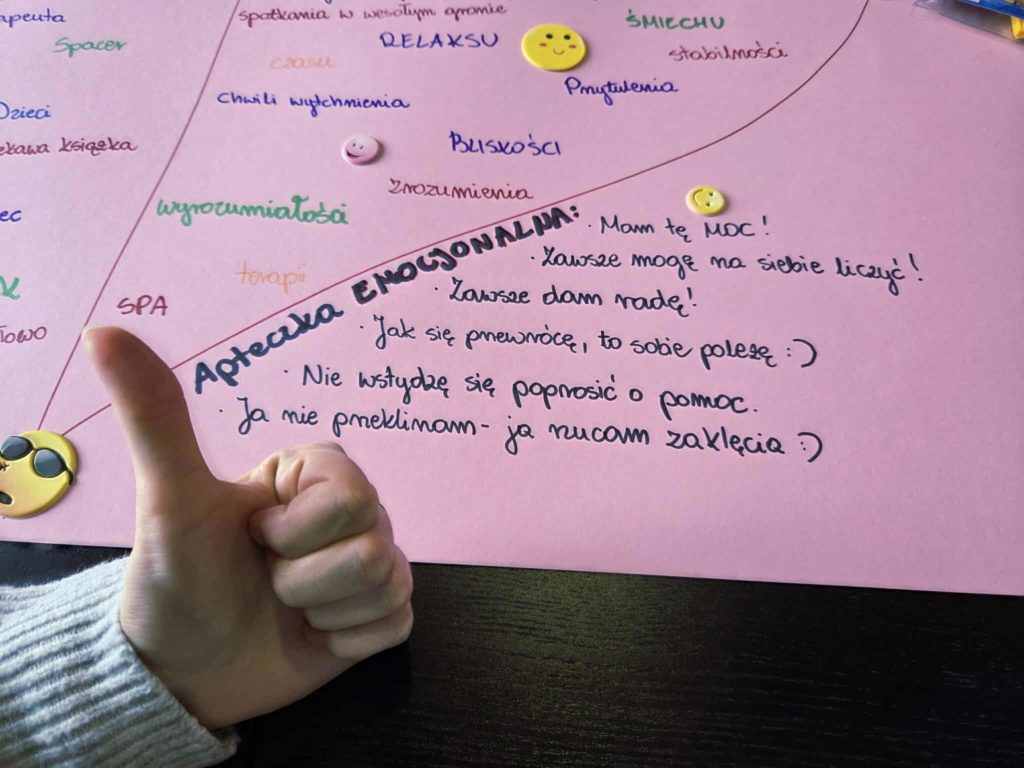 apeuta
Spacer
Dzieci
ekawa książka
ec
łowo
spotkania w wesołym gronie
RELAKSU
ŚMIECHU
czasu
stabilności
Chwili wytchnienia
Przytulenia
BLISKOŚCI
Zrozumienia
wyrozumiałości
terapii
SPA
Apteczka EMOCJONALNA:
· Mam tę MOC!
· Zawsze mogę na siebie liczyć!
· Zawsze dam radę!
· Jak się przewrócę, to sobie poleżę :)
· Nie wstydzę się poprosić o pomoc.
· Ja nie przeklinam - ja rzucam zaklęcia :)